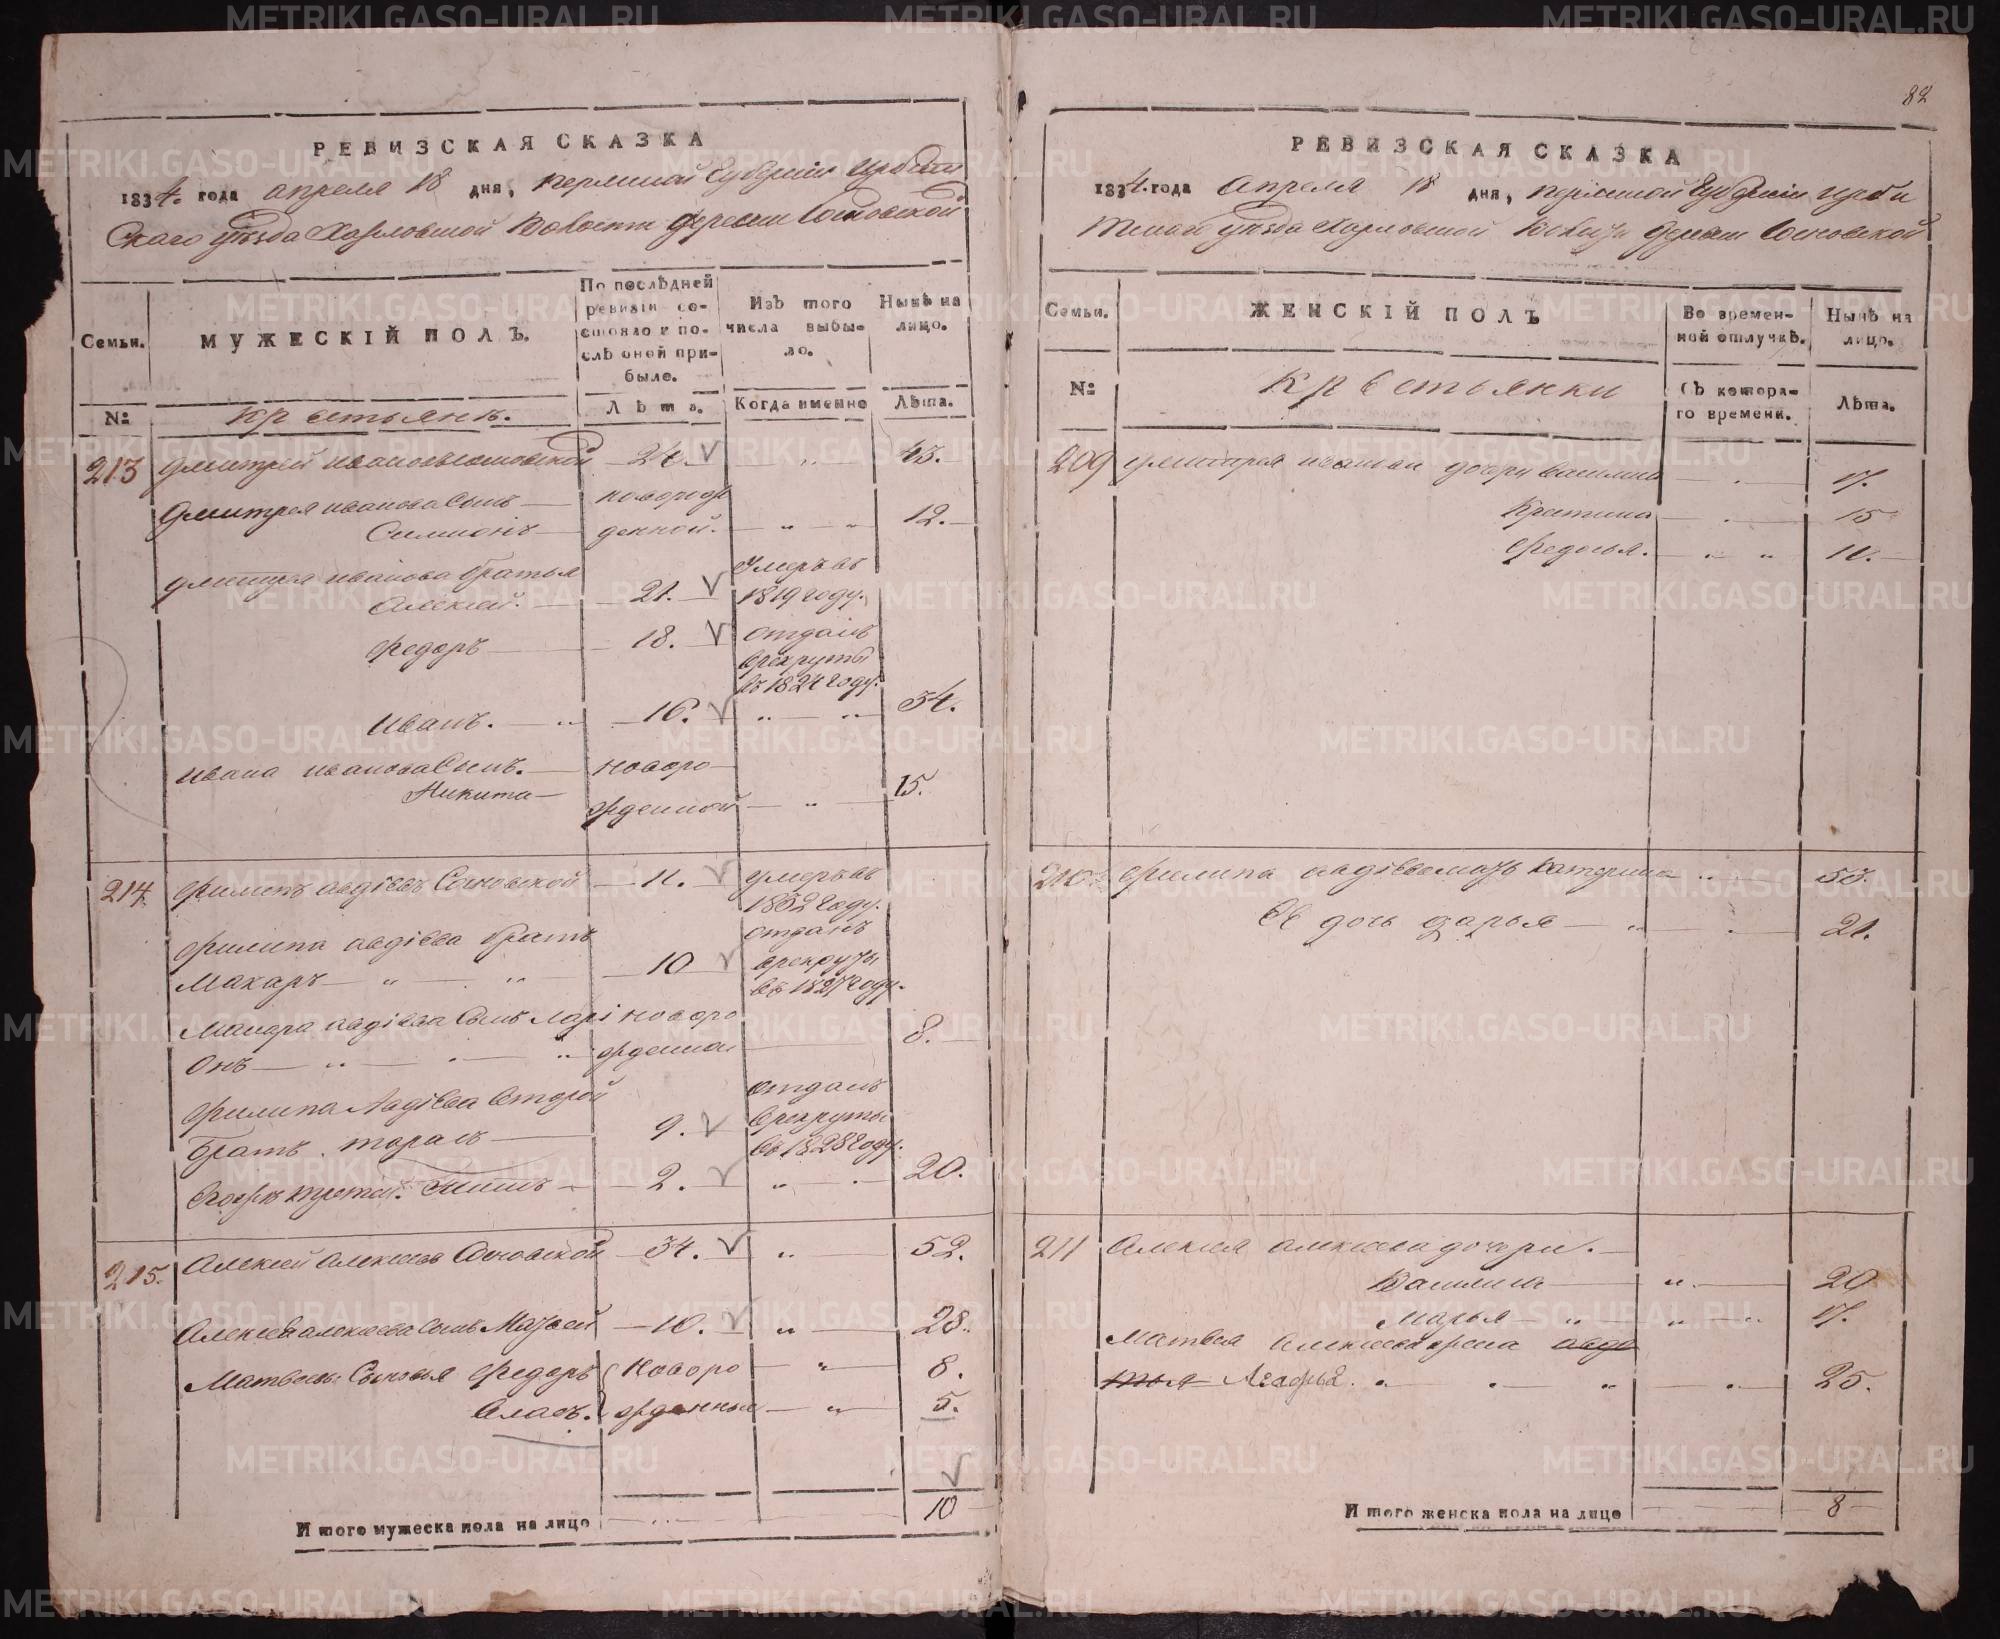 РЕВИЗСКАЯ СКАЗКА
1834. года апреля 18 дня, пермской Губернии Ирбит
скаго уѣзда Харловской Волости деревни Сосновской
Семьи.
МУЖЕСКІЙ ПОЛЪ.
По послѣдней ревизіи со-стояло и по-слѣ оной при-было.
Изъ того числа выбы-ло.
Нынѣ на лицо.
№
Крестьянъ.
Лѣта.
Когда именно
Лѣта.
213 Дмитрей ивановъ Сосновской 24. 45.
Дмитрея иванова Сынъ новорож
Симионъ денной. 12.
Дмитрея иванова братья Умеръ въ
Алексей. 21. 1819 году.
Федоръ 18. отданъ
врекруты
въ 1824 году.
Иванъ. 16. 34.
Ивана иванова Сынъ. новоро
Никита жденной 15.
214 Филипъ авдѣевъ Сосновской 11. умеръ въ
1832 году.
Филипа авдѣева братъ отданъ
Макаръ 10 врекруты
въ 1827 году.
Макара авдѣева Сынъ Лари новоро
онъ жденной 8.
Филипа Авдѣева второй отданъ
братъ. 9. врекруты
въ 1828 году.
2. 20.
215. Алексей алексеевъ Сосновской 34. 52.
Алексея алексеева Сынъ Матвей 10. 28.
Матвеевы Сыновья Федоръ новоро 8.
Власъ. жденные 5.
Итого мужеска пола на лицо 10
82
РЕВИЗСКАЯ СКАЗКА
1834. года апреля 18 дня, пермской Губернии ирби
тскаго уѣзда Харловской волости деревни Сосновской
Семьи.
ЖЕНСКІЙ ПОЛЪ
Во времен-ной отлучкѣ.
Нынѣ на лицо.
№
Крестьянки
Съ котора-го времени.
Лѣта.
209 дмитрея иванова дочери василиса 17.
15
Федосья. 11.
210 Филипа авдѣева мать катерина 55.
Ее дочь дарья 21.
211 Алексея алексеева дочери.
Василиса 20
Марья 17.
Матвея Алексеева жена авдо
тья Агафья. 25.
Итого женска пола на лицо 8
METRIKI.GASO-URAL.RU